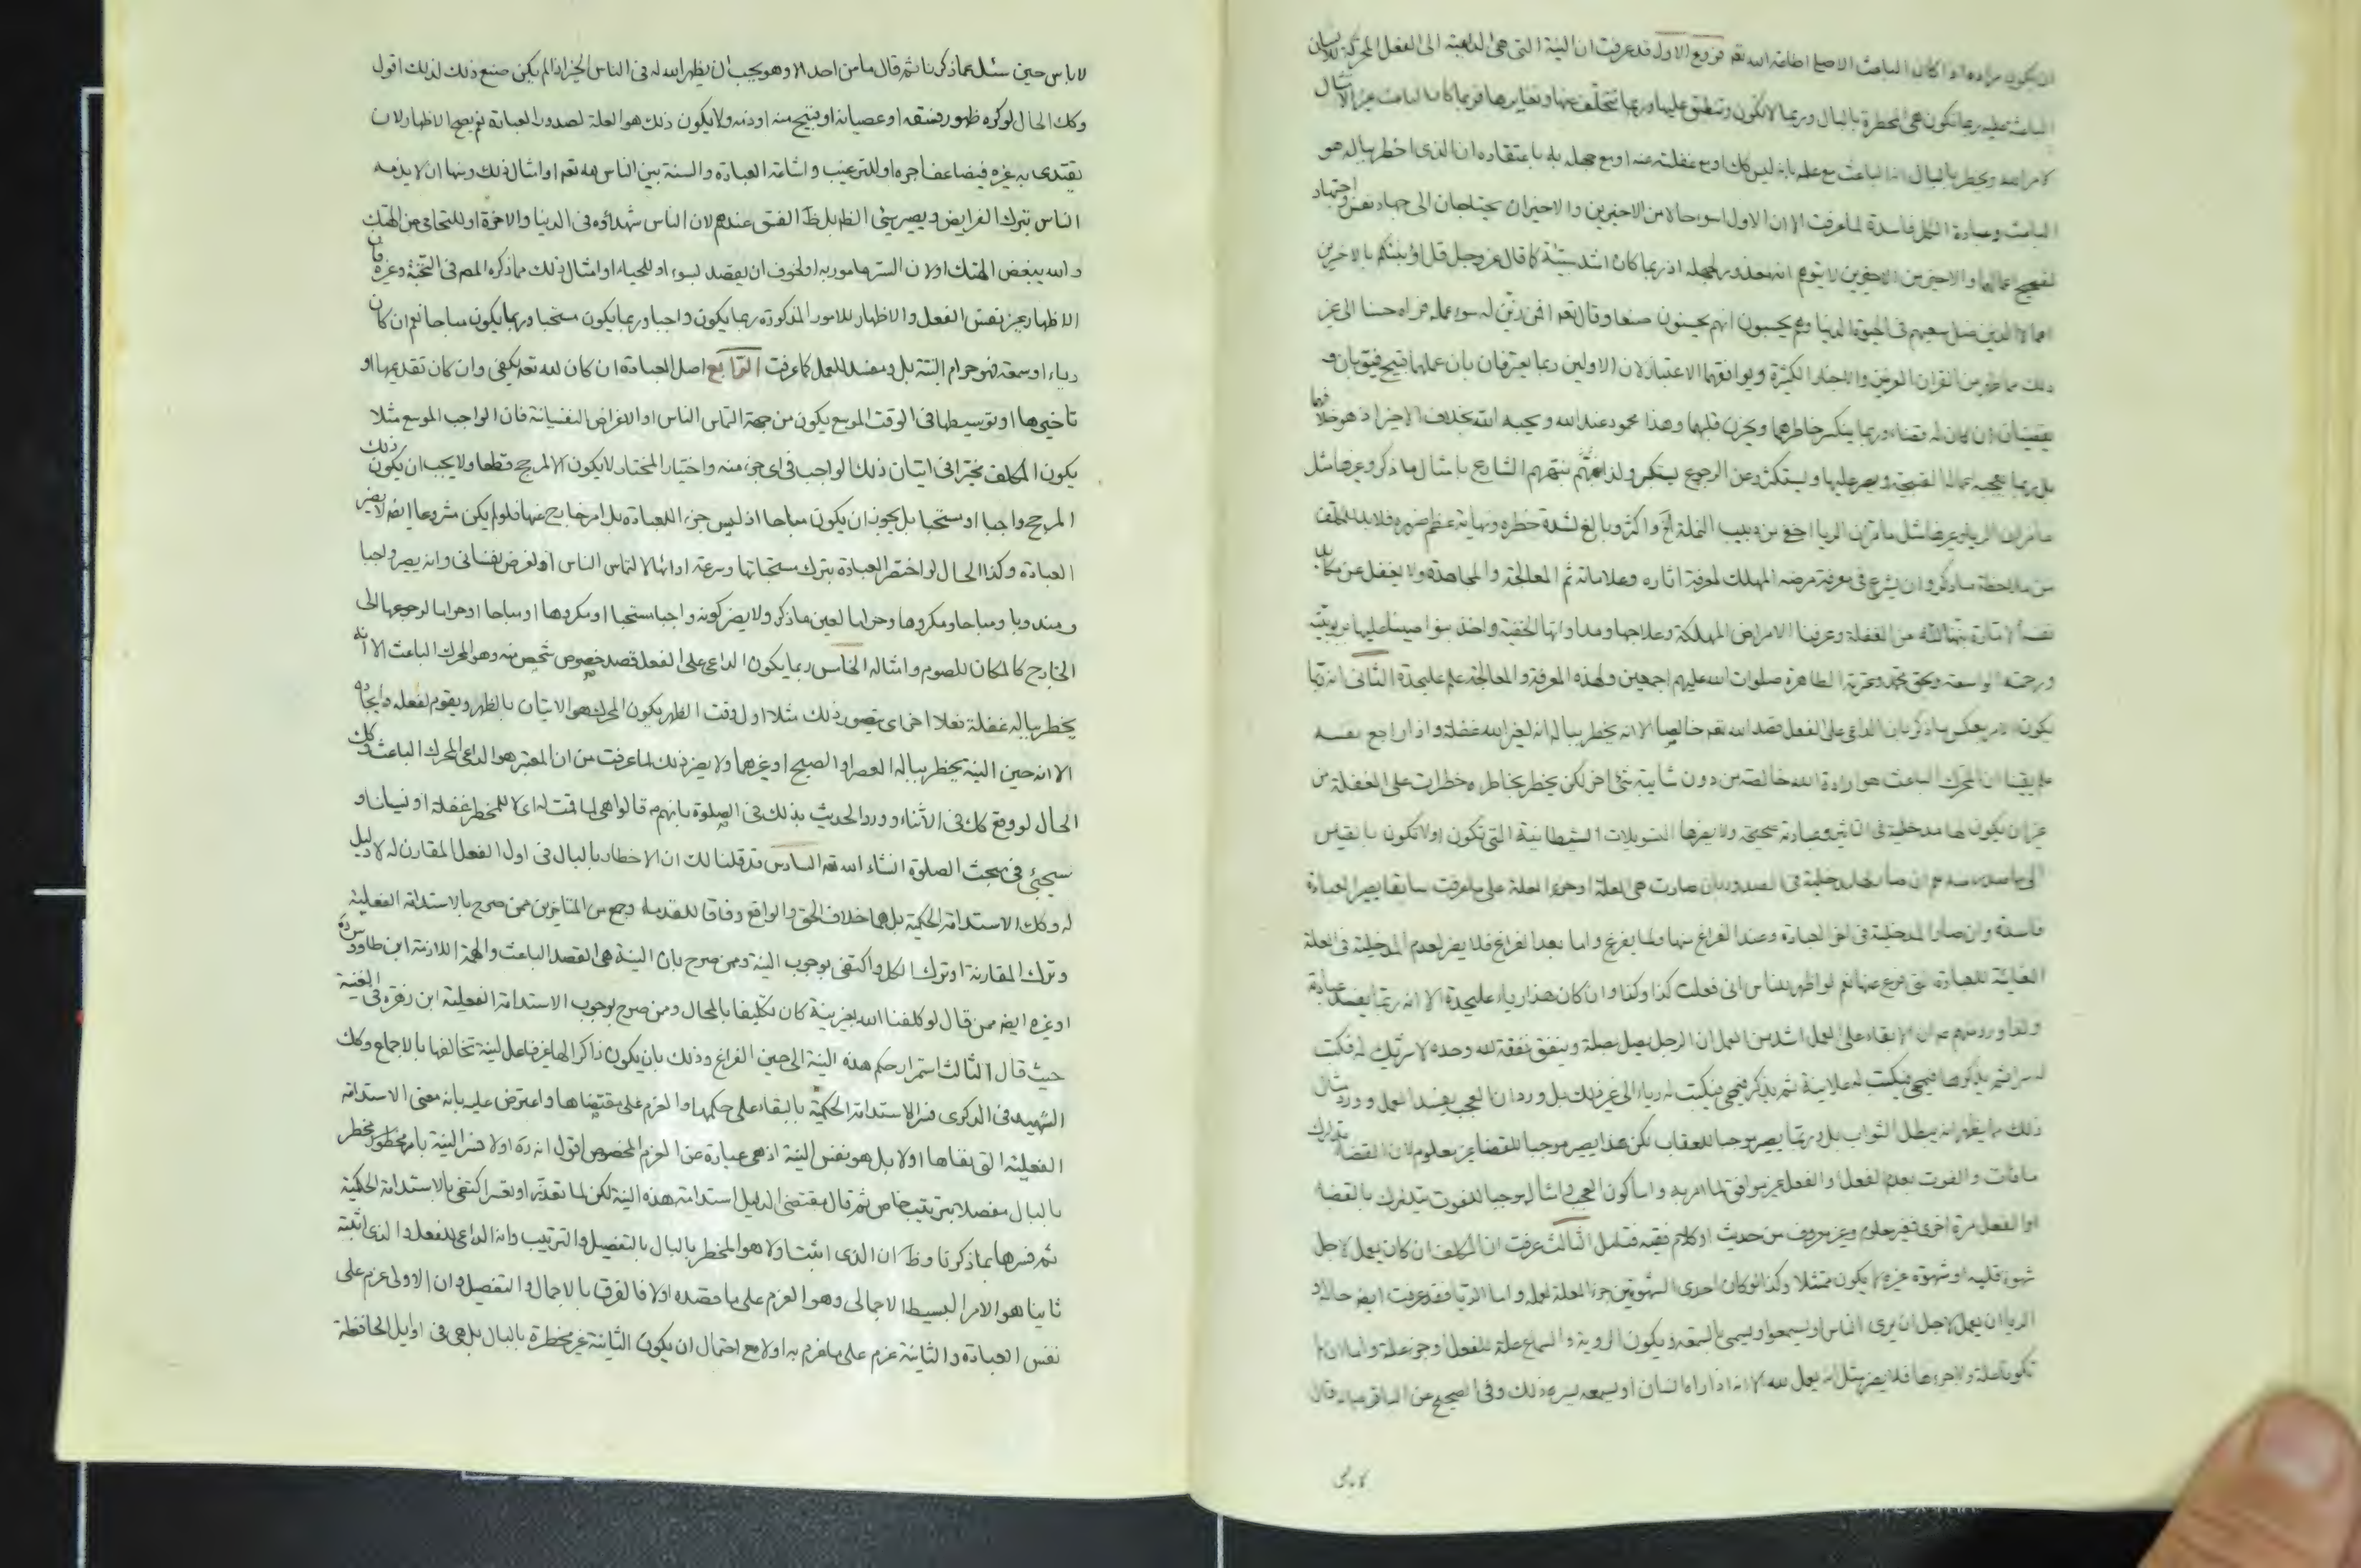 ان يكون مراده اذا كان الباعث الاصلى اطاعة الله تعالى فروع الاول قد عرفت ان النية التى هى الداعية الى الفعل المحركة للانسان
الباعثة عليه ربما تكون هى المخطرة بالبال وربما لا تكون وتنطبق عليها وربما تتخلف عنها وتغايرها فربما كان الباعث غير الامتثال
لامر الله ويخطر بالبال انه الباعث مع علمه بانه ليس كك او مع غفلته عنه او مع جهله به باعتقاده ان الذى اخطر بباله هو
الباعث وعبادة الكل فاسدة لما عرفت الا ان الاول اسوء حالا من الاخيرين والاخيران يحتاجان الى جهاد نفس واجتهاد
لتصحيح اعمالهما والاخير من الاخيرين لا يتوهم انه معذور لجهله اذ ربما كان اشد سيئة كما قال عز وجل قل اؤنبئكم بالاخرين
اعمالا الذين ضل سعيهم فى الحيوة الدنيا وهم يحسبون انهم يحسنون صنعا وقال تعالى افمن زين له سوء عمله فراه حسنا الى غير
ذلك مما ظهر من القران العزيز والاخبار الكثيرة ويوافقهما الاعتبار لان الاولين ربما يعترفان بان عملهما قبيح فيتوبان و
يقضيان ان كان له قضاء وربما ينكسر خاطرهما ويحزن قلبهما وهذا محمود عند الله ويحبه الله بخلاف الاخير اذ هو خلافهما
بل ربما يعجبه اعماله القبيحة ويصر عليها ويستكثر وعن الرجوع يستكبر ولذا تنبههم الشارع بامثال ما ذكر وغيرها مثل
ما مر ان الريا وغيرها مثل ما مر ان الريا اخفى من دبيب النملة الخ واكثر وبالغ لشدة خطره ونهاية عظم ضرره فلا بد للمكلف
من ملاحظة ما ذكر وان يشرع فى معرفة مرضه المهلك لمعرفة اثاره وعلاماته ثم المعالجة والمجاهدة ولا يغفل عن مكائد
نفسه الامارة نبهنا الله من الغفلة وعرفنا الامراض المهلكة وعلاجها ومداواتها الخفية واخذ بنواصينا عليها بربوبيته
ورحمته الواسعة وبحق محمد وعترته الطاهرة صلوات الله عليهم اجمعين ولهذه المعرفة والمعالجة علم عليحدة الثانى انه ربما
يكون الامر بعكس ما ذكر بان الداعى على الفعل قصد الله تعالى خالصا الا انه يخطر بباله انه لغير الله غفلة واذا راجع نفسه
علم يقينا ان المحرك الباعث هو ارادة الله خالصة من دون شائبة شئ اخر لكن يخطر بخاطره خطرات على الغفلة من
غير ان يكون لها مدخلية فى التاثير وعبادته صحيحة ولا يضرها التسويلات الشيطانية التى تكون او لا تكون بالقياس
الى ما صدر منه نعم ان صار لها مدخلية فى الصدور بان صارت هى العلة او جزء العلة على ما عرفت سابقا يصير العبادة
فاسدة وان صار المدخلية فى اخر العبادة وعند الفراغ منها ولما يفرغ واما بعد الفراغ فلا يضر لعدم المدخلية فى العلة
الغائية للعبادة التى فرغ عنها نعم لو اظهر للناس انى فعلت كذا وكذا وان كان هذا رياء عليحدة الا انه ربما يفسد عبادته
ولذا ورد عنهم ان الابقاء على العمل اشد من العمل ان الرجل يصل بصلة وينفق نفقة لله وحده لا شريك له فكتب
له سرا ثم يذكرها فيمحى فيكتب له علانية ثم يذكر فيمحى فيكتب له رياء الى غير ذلك بل ورد ان العجب يفسد العمل وورد امثال
ذلك مما يظهر انه يبطل الثواب بل ربما يصير موجبا للعقاب لكن هذا يصير موجبا للقضاء غير معلوم لان القضاء تدارك
ما فات والفوت بعدم الفعل او الفعل غير موافق لما امر به واما كون العجب وامثاله موجبا للفوت يتدارك بالقضاء
او الفعل مرة اخرى فغير معلوم وغير معروف من حديث او كلام فقيه فتامل الثالث عرفت ان المكلف ان كان يعمل لاجل
شهوة قلبه او شهوة غيره لا يكون ممتثلا وكذا لو كان احدى الشهوتين جزء العلة لعمله واما الريا فقد عرفت ايضا حاله و
الريا ان يعمل لاجل ان يرى الناس او يسمعوا ويسمى بالسمعة ويكون الروية والسماع علة للفعل او جزء علة واما اذا لم
تكونا علة ولا جزءها فلا يضر مثل انه يعمل لله الا انه اذا راه انسان او يسمعه يسره ذلك وفى الصحيح عن الباقر عليه قال
لا باس
لا باس حين سئل عما ذكرنا ثم قال ما من احد الا وهو يحب ان يظهر الله له فى الناس الخير اذا لم يكن صنع ذلك لذلك اقول
وكك الحال لو كره ظهور فسقه او عصيانه او قبيح منه او ذنبه ولا يكون ذلك هو العلة لصدور العبادة نعم يصح الاظهار لان
يقتدى به غيره فيضاعف اجره او للترغيب واشاعة العبادة والسنة بين الناس لله تعالى او امثال ذلك ومنها ان لا يذمه
الناس بترك الفرايض ويصير سيئ الظاهر بل ظاهر الفسق عندهم لان الناس شهداؤه فى الدنيا والاخرة او للتحامى عن الهتك
والله يبغض الهتك او لان الستر مامور به او لخوف ان يقصد لسوء او للحياء او امثال ذلك مما ذكره المصنف فى النخبة وغيره فان
الاظهار غير نفس الفعل والاظهار للامور المذكورة ربما يكون واجبا وربما يكون مستحبا وربما يكون مباحا نعم ان كان
رياء او سمعة فهو حرام البتة بل ومفسد للعمل كما عرفت الرابع اصل العبادة ان كان لله تعالى يكفى وان كان تقديمها او
تاخيرها او توسيطها فى الوقت الموسع يكون من جهة التماس الناس او الاغراض النفسانية فان الواجب الموسع مثلا
يكون المكلف مخيرا فى اتيان ذلك الواجب فى اى جزء منه واختيار المختار لا يكون الا لمرجح قطعا ولا يجب ان يكون ذلك
المرجح واجبا او مستحبا بل يجوز ان يكون مباحا اذ ليس جزء للعبادة بل امر خارج عنها فلو لم يكن مشروعا ايضا لا يضر
العبادة وكذا الحال لو اختصر العبادة بترك مستحباتها وسرعة ادائها لالتماس الناس او لغرض نفسانى وانه يصير واجبا
ومندوبا ومباحا ومكروها وحراما لعين ما ذكر ولا يضر كونه واجبا مستحبا او مكروها او مباحا او حراما لرجوعها الى
الخارج كالمكان للصوم وامثاله الخامس ربما يكون الداعى على الفعل قصد خصوص شخص منه وهو المحرك الباعث الا انه
يخطر بباله غفلة فعلا اخر اى يتصور ذلك مثلا اول وقت الظهر يكون المحرك هو الاتيان بالظهر ويقوم لفعله وايجاده
الا انه حين النية يخطر بباله العصر او الصبح او غيرهما ولا يضر ذلك لما عرفت من ان المعتبر هو الداعى المحرك الباعث وكك
الحال لو وقع كك فى الاثناء وورد الحديث بذلك فى الصلوة بانهم قالوا هى لما قمت له اى لا للمخطر غفلة او نسيانا و
سيجئ فى مبحث الصلوة انشاء الله تعالى السادس قد قلنا لك ان الاخطار بالبال فى اول الفعل المقارن له لا دليل
له وكك الاستدامة الحكمية بل هما خلاف الحق والواقع وفاقا للقدماء وجمع من المتاخرين ممن صرح بالاستدامة الفعلية
وترك المقارنة او ترك الكل واكتفى بوجوب النية وممن صرح بان النية هى القصد الباعث والهمة اللازمة ابن طاووس ره
او غيره ايضا ممن قال لو كلفنا الله بغير نية كان تكليفا بالمحال وممن صرح بوجوب الاستدامة الفعلية ابن زهرة فى الغنية
حيث قال الثالث استمرار حكم هذه النية الى حين الفراغ وذلك بان يكون ذاكرا لها غير فاعل لنية تخالفها بالاجماع وكك
الشهيد فى الذكرى فسر الاستدامة الحكمية بالبقاء على حكمها والعزم على مقتضاها واعترض عليه بانه معنى الاستدامة
الفعلية التى نفاها اولا بل هو نفس النية اذ هى عبارة عن العزم المخصوص اقول انه ره اولا فسر النية بامر مخطر
بالبال مفصلا بترتيب خاص ثم قال مقتضى الدليل استدامة هذه النية لكن لما تعذر او تعسر اكتفى بالاستدامة الحكمية
ثم فسرها بما ذكرنا وظ ان الذى اثبت اولا هو المخطر بالبال بالتفصيل والترتيب وانه الداعى للفعل والذى اثبته
ثانيا هو الامر البسيط الاجمالى وهو العزم على ما قصده اولا فالفرق بالاجمال والتفصيل وان الاولى عزم على
نفس العبادة والثانية عزم على ما عزم به اولا مع احتمال ان يكون الثانية غير مخطرة بالبال بل هى فى اوايل الحافظة